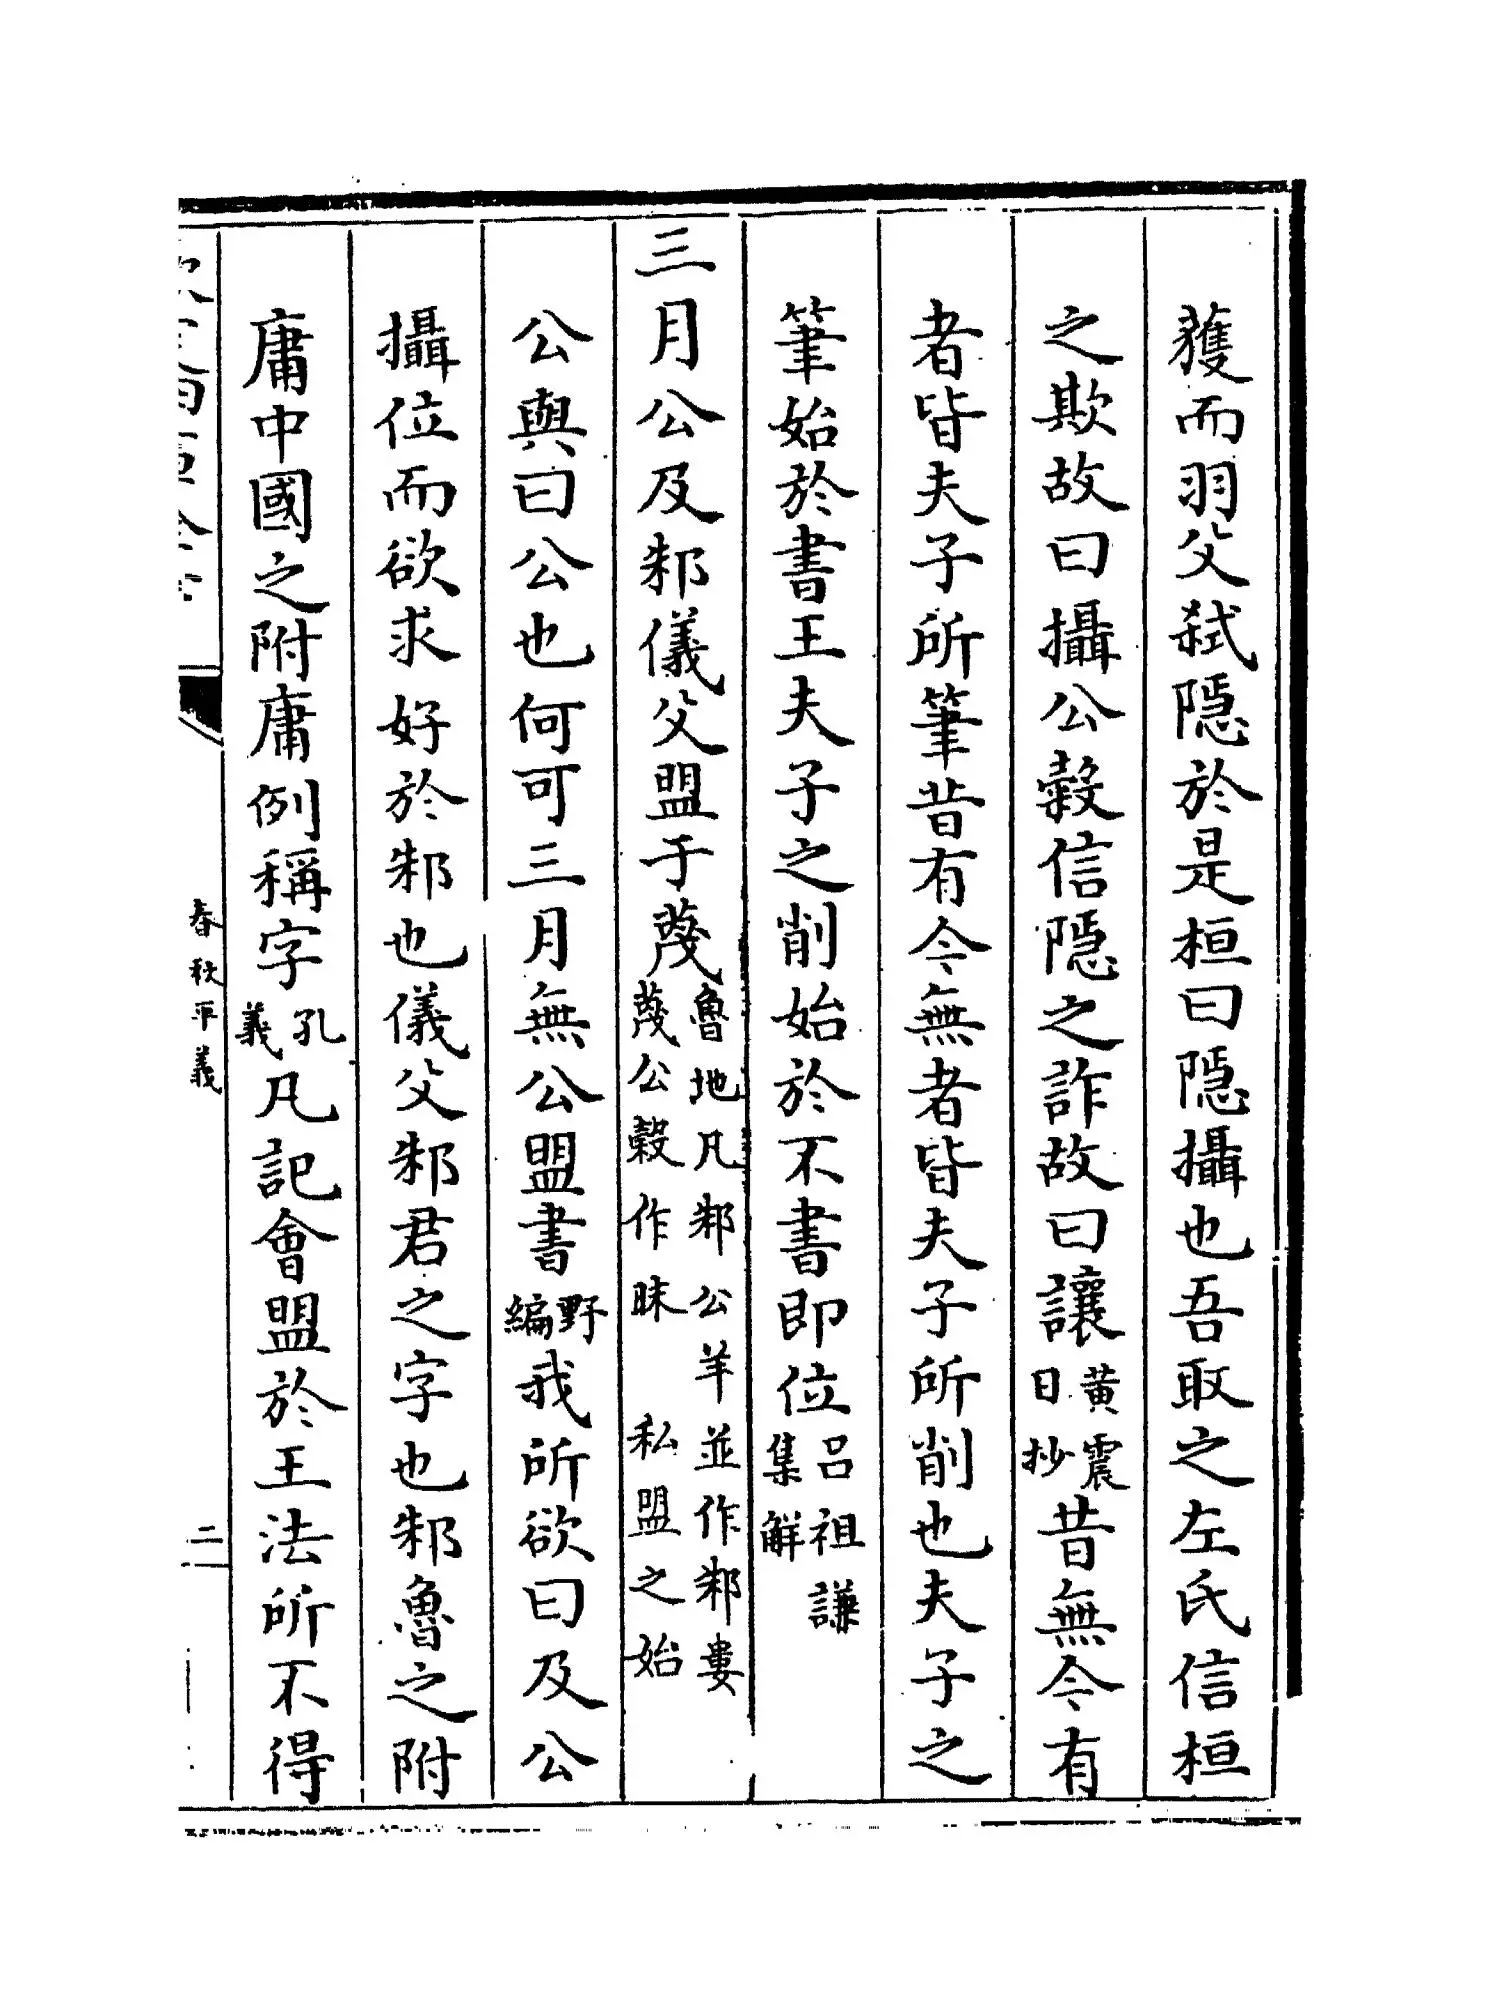 獲而羽父弑隱於是桓曰隱攝也吾取之左氏信桓
之欺故曰攝公穀信隱之詐故曰讓黄震日抄昔無今有
者皆夫子所筆昔有今無者皆夫子所削也夫子之
筆始於書王夫子之削始於不書即位吕祖謙集解
三月公及邾儀父盟于蔑魯地凡邾公羊並作邾婁蔑公穀作眛 私盟之始
公與曰公也何可三月無公盟書野編我所欲曰及公
攝位而欲求好於邾也儀父邾君之字也邾魯之附
庸中國之附庸例稱字孔義凡記會盟於王法所不得
春秋平義
二